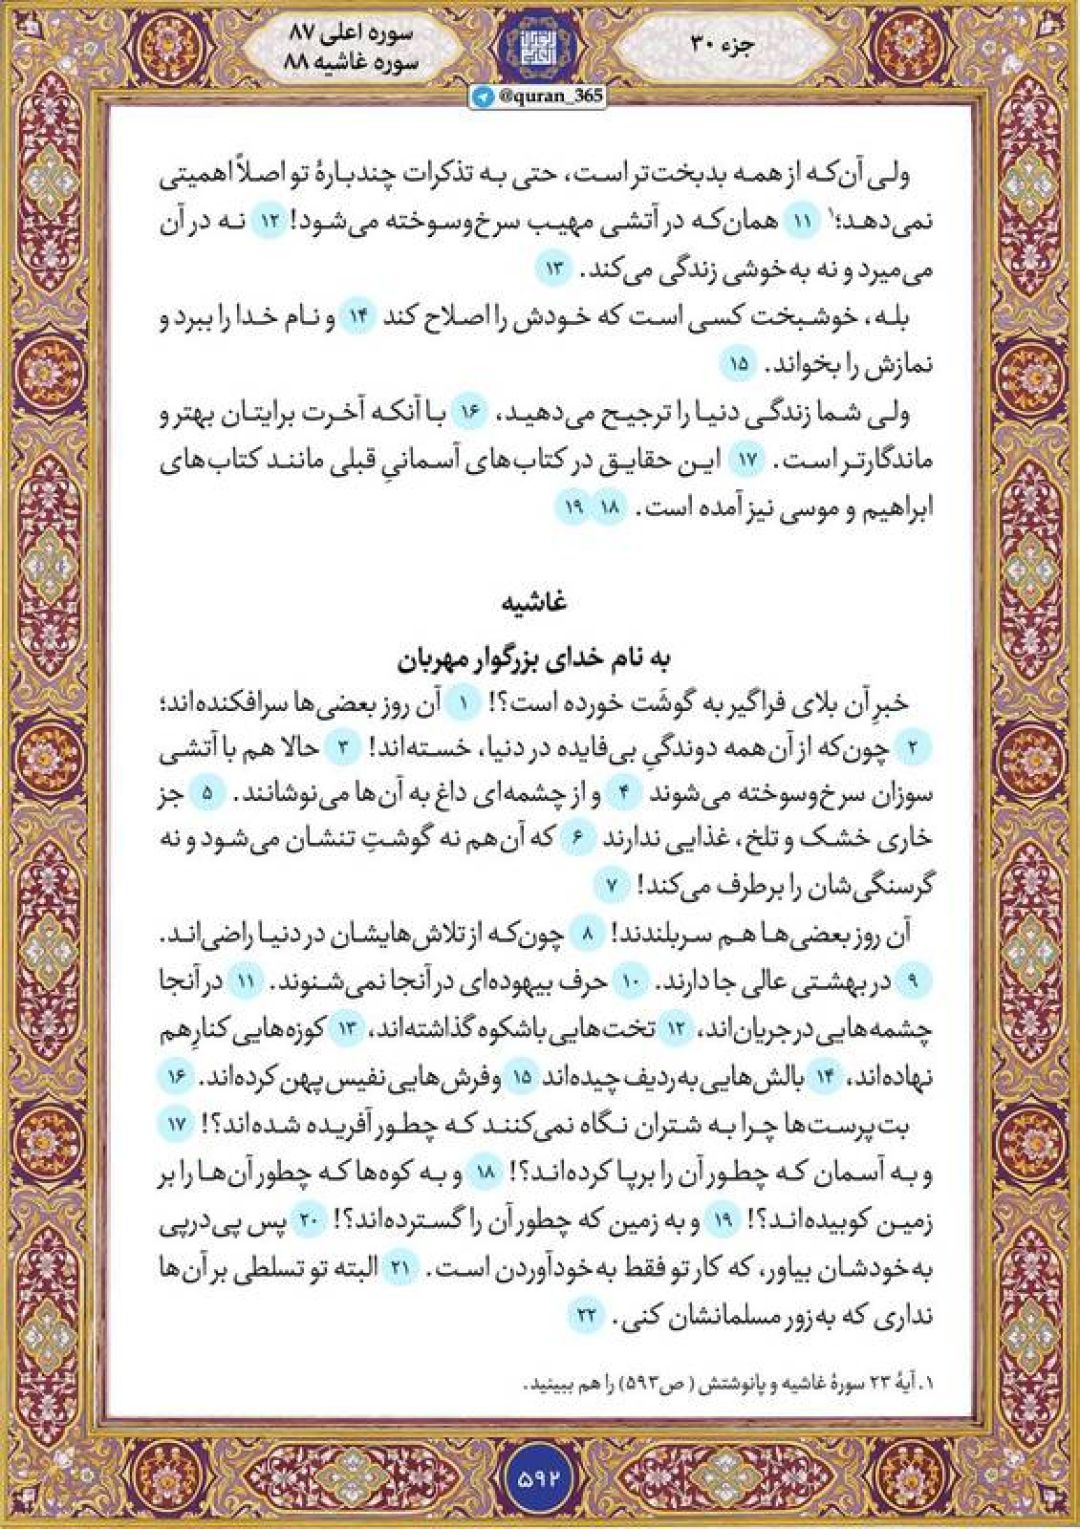 جزء ۳۰
سوره اعلی ۸۷
سوره غاشیه ۸۸
@quran_365
ولی آن‌که از همه بدبخت‌تر است، حتی به تذکرات چندبارهٔ تو اصلاً اهمیتی
نمی‌دهد؛۱ ۱۱ همان‌که در آتشی مهیب سرخ‌وسوخته می‌شود! ۱۲ نه در آن
می‌میرد و نه به‌خوشی زندگی می‌کند. ۱۳
بله، خوشبخت کسی است که خودش را اصلاح کند ۱۴ و نام خدا را ببرد و
نمازش را بخواند. ۱۵
ولی شما زندگی دنیا را ترجیح می‌دهید، ۱۶ با آنکه آخرت برایتان بهتر و
ماندگارتر است. ۱۷ این حقایق در کتاب‌های آسمانیِ قبلی مانند کتاب‌های
ابراهیم و موسی نیز آمده است. ۱۸ ۱۹
غاشیه
به نام خدای بزرگوار مهربان
خبرِ آن بلای فراگیر به گوشَت خورده است؟! ۱ آن روز بعضی‌ها سرافکنده‌اند؛
۲ چون‌که از آن‌همه دوندگیِ بی‌فایده در دنیا، خسته‌اند! ۳ حالا هم با آتشی
سوزان سرخ‌وسوخته می‌شوند ۴ و از چشمه‌ای داغ به آن‌ها می‌نوشانند. ۵ جز
خاری خشک و تلخ، غذایی ندارند ۶ که آن‌هم نه گوشتِ تنشان می‌شود و نه
گرسنگی‌شان را برطرف می‌کند! ۷
آن روز بعضی‌ها هم سربلندند! ۸ چون‌که از تلاش‌هایشان در دنیا راضی‌اند.
۹ در بهشتی عالی جا دارند. ۱۰ حرف بیهوده‌ای در آنجا نمی‌شنوند. ۱۱ در آنجا
چشمه‌هایی در جریان‌اند، ۱۲ تخت‌هایی باشکوه گذاشته‌اند، ۱۳ کوزه‌هایی کنارِهم
نهاده‌اند، ۱۴ بالش‌هایی به‌ردیف چیده‌اند ۱۵ و فرش‌هایی نفیس پهن کرده‌اند. ۱۶
بت‌پرست‌ها چرا به شتران نگاه نمی‌کنند که چطور آفریده شده‌اند؟! ۱۷
و به آسمان که چطور آن را برپا کرده‌اند؟! ۱۸ و به کوه‌ها که چطور آن‌ها را بر
زمین کوبیده‌اند؟! ۱۹ و به زمین که چطور آن را گسترده‌اند؟! ۲۰ پس پی‌درپی
به‌خودشان بیاور، که کار تو فقط به‌خودآوردن است. ۲۱ البته تو تسلطی بر آن‌ها
نداری که به‌زور مسلمانشان کنی. ۲۲
۱. آیهٔ ۲۳ سورهٔ غاشیه و پانوشتش (ص۵۹۳) را هم ببینید.
۵۹۲